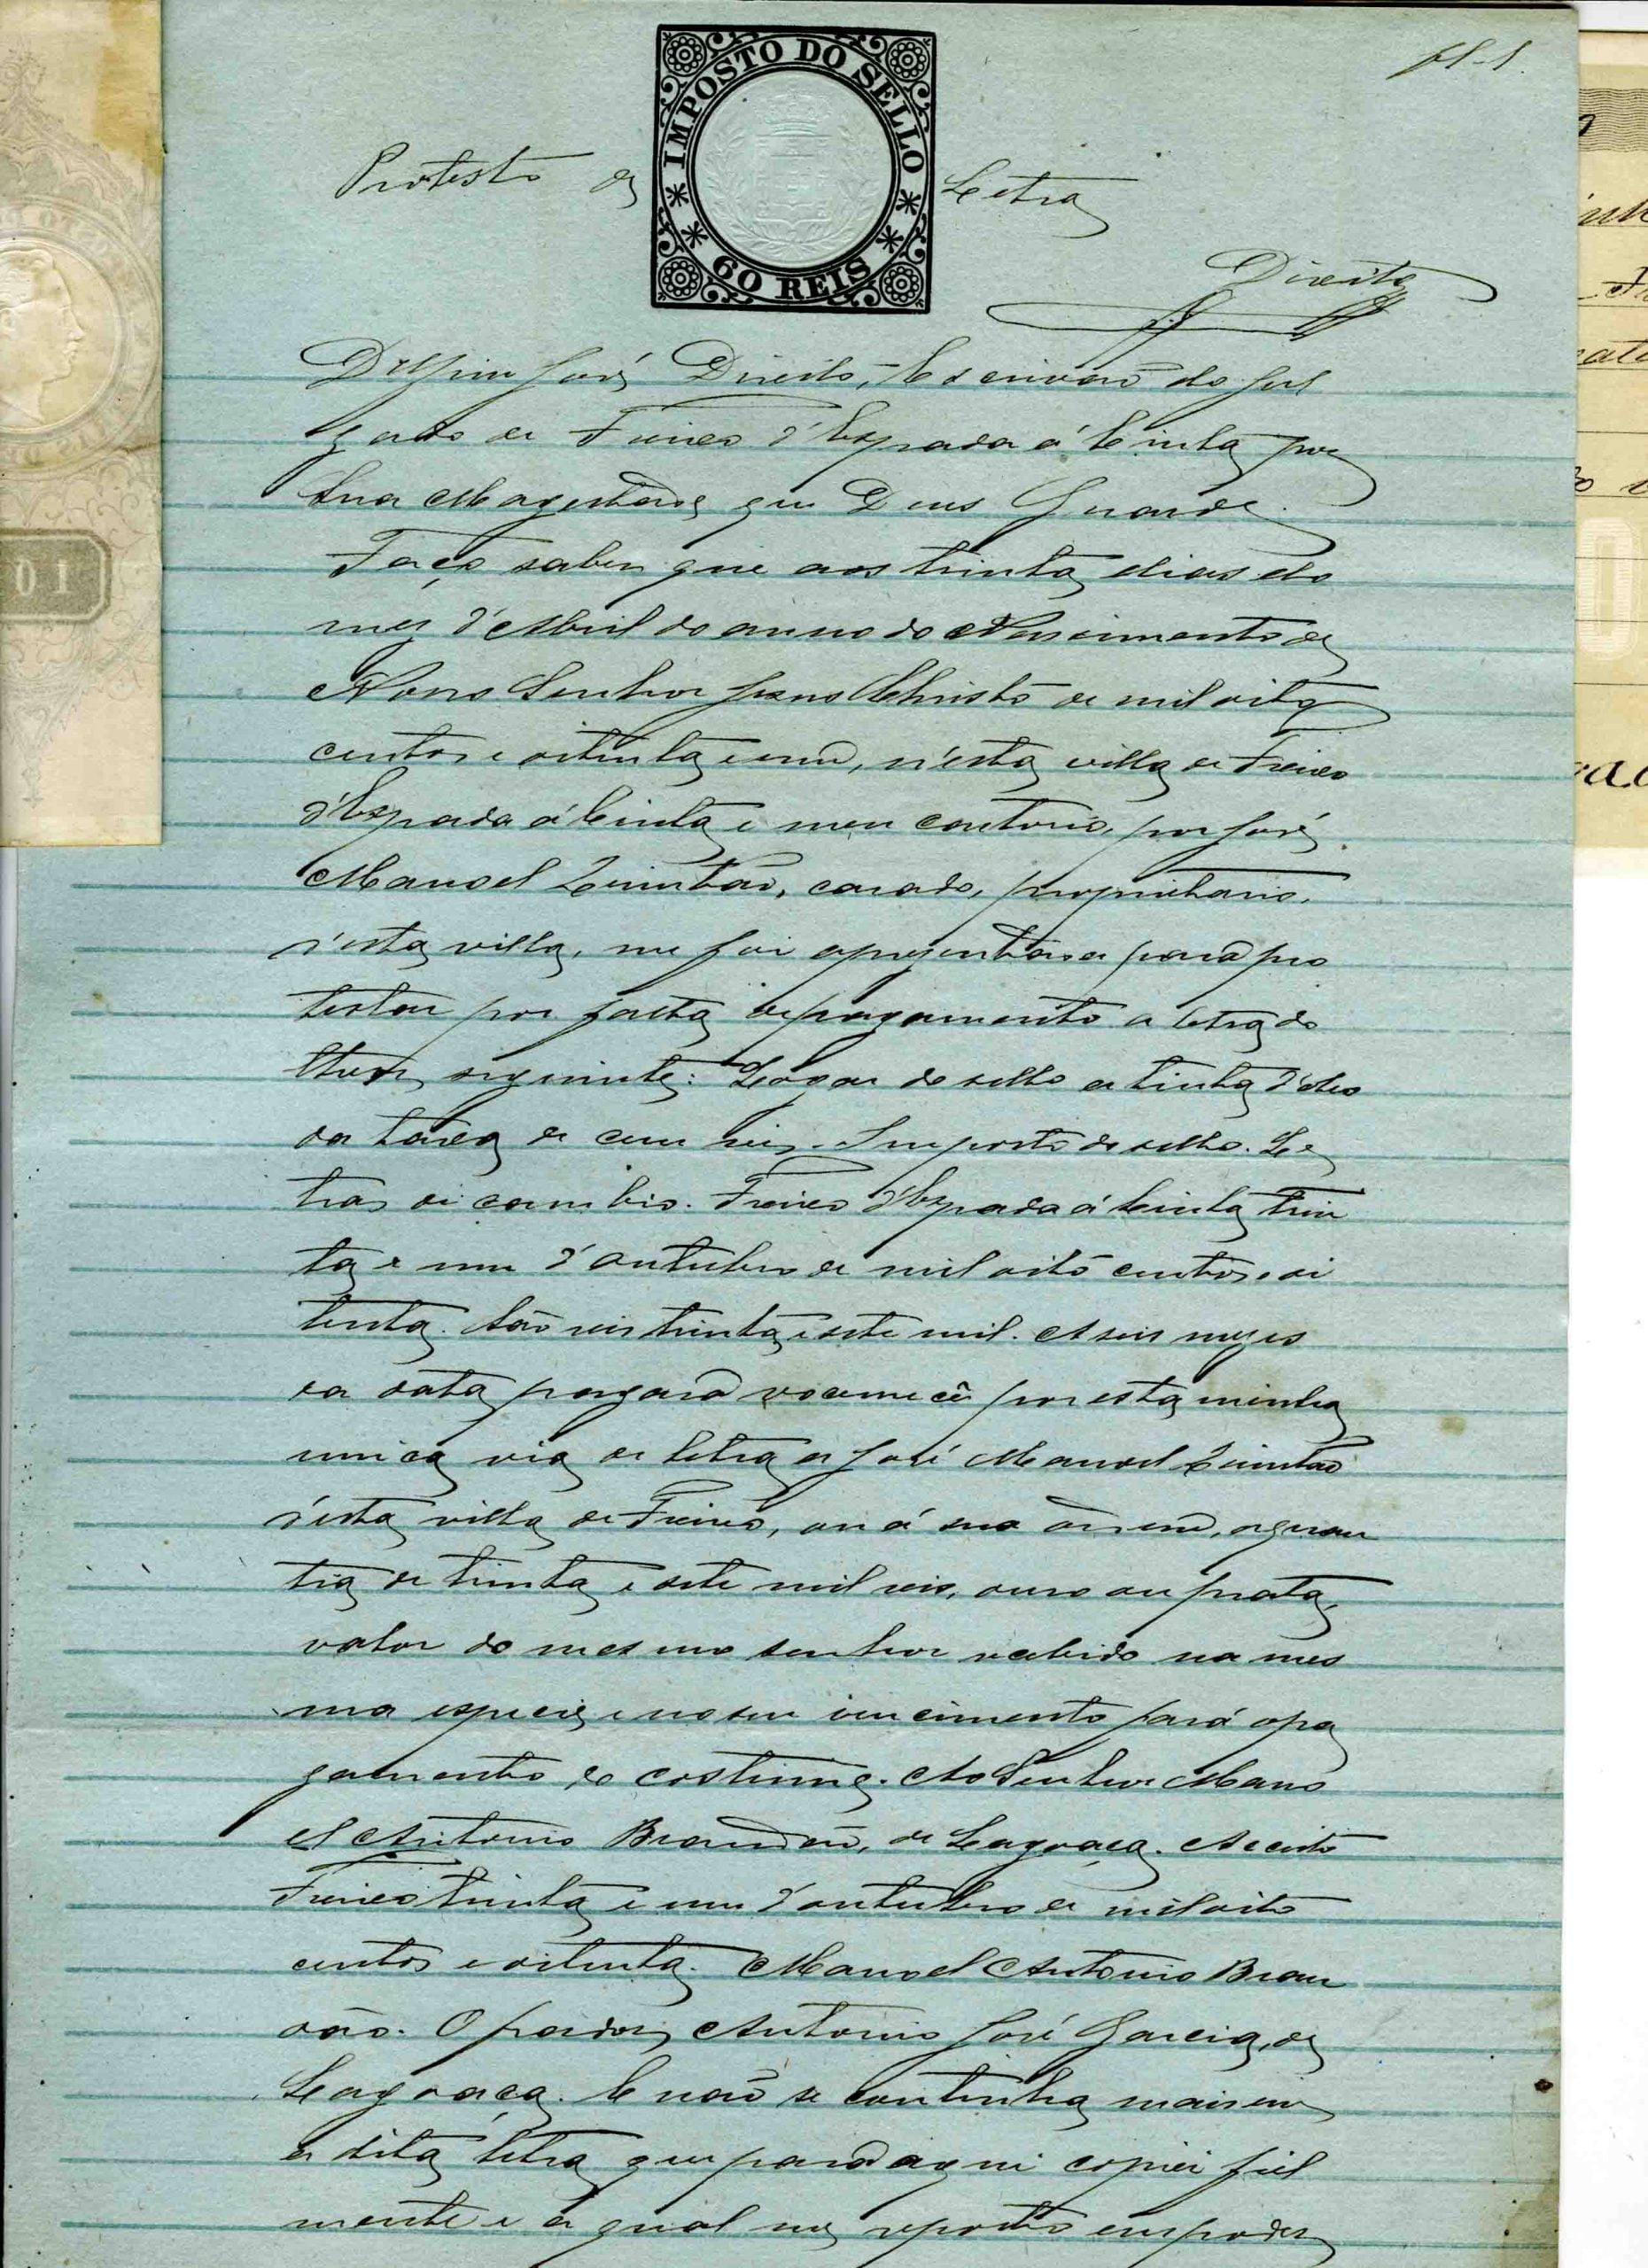 fl-1.
IMPOSTO DO SELLO
60 REIS
Protesto de Letra
Direito
Delfim José Direito, Escrivaõ do Jul
gado de Freixo d'Espada á Cinta por
Sua Magestade que Deus Guarde.
Faço saber que aos trinta dias do
mez d'Abril do anno do Nascimento de
Nosso Senhor Jesus Christo de mil oito
centos e oitenta e um, n'esta villa de Freixo
d'Espada á Cinta e meu cartorio, por José
Manoel Quintão, casado, proprietario,
d'esta villa, me foi apresentada para pro
testar por falta de pagamento a letra do
theor seguinte: Logar do sello a tinta d'oleo
da taxa de cem reis. Imposto do sello. Le
tras de cambio. Freixo d'Espada á Cinta trin
ta e um d'outubro de mil oito centos e oi
tenta. São reis trinta e sete mil. A seis mezes
da data pagará vocemecê por esta minha
unica via de letra a José Manoel Quintão
d'esta villa de Freixo, ou á sua ordem, a quan
tia de trinta e sete mil reis, ouro ou prata,
valor do mesmo senhor recebido na mes
ma especie e no seu vencimento fará o pa
gamento do costume. Ao Senhor Mano
el Antonio Brandão, de Lagoaça. Aceito
Freixo trinta e um d'outubro de mil oito
centos e oitenta. Manoel Antonio Bran
dão. O fiador, Antonio José Garcia, de
Lagoaça. E naõ se continha mais em
a dita letra que para aqui copiei fiel
mente e á qual me reporto em poder
01